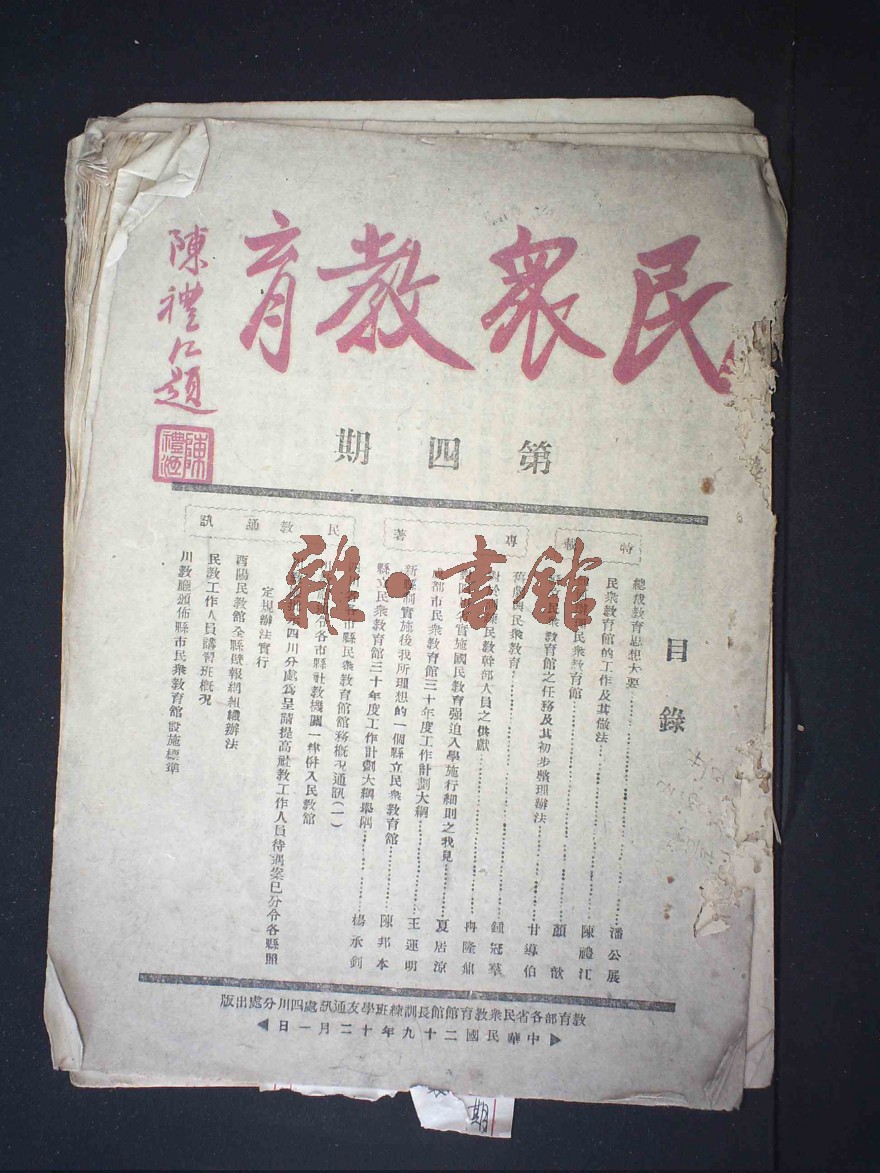 民衆教育
陳禮江題
陳禮江
第四期
目錄
特載
總裁教育思想大要……潘公展
民衆教育館的工作及其做法……陳禮江
民衆教育館……顏歆
民衆教育館之任務及其初步整理辦法……甘導伯
專著
舊劇與民衆教育……鍾冠羣
民教幹部人員之供獻……冉隆
實施國民教育強迫入學施行細則之我見……夏居涼
成都市民衆教育館三十年度工作計劃大綱
新縣制實施後我所理想的一個縣立民衆教育館……王運明
縣立民衆教育館三十年度工作計劃大綱舉隅……陳邦本
楊承釗
民教通訊
市縣民衆教育館館務概況通訊（一）
令各市縣社教機關一律併入民教館
四川分處爲呈請提高社教工作人員待遇案已分令各縣照
定規辦法實行
酉陽民教館全縣壁報網組織辦法
民教工作人員講習班概況
川教廳頒佈縣市民衆教育館設施標準
教育部各省民衆教育館館長訓練班學友通訊處四川分處出版
中華民國二十九年十二月一日
雜·書館
期